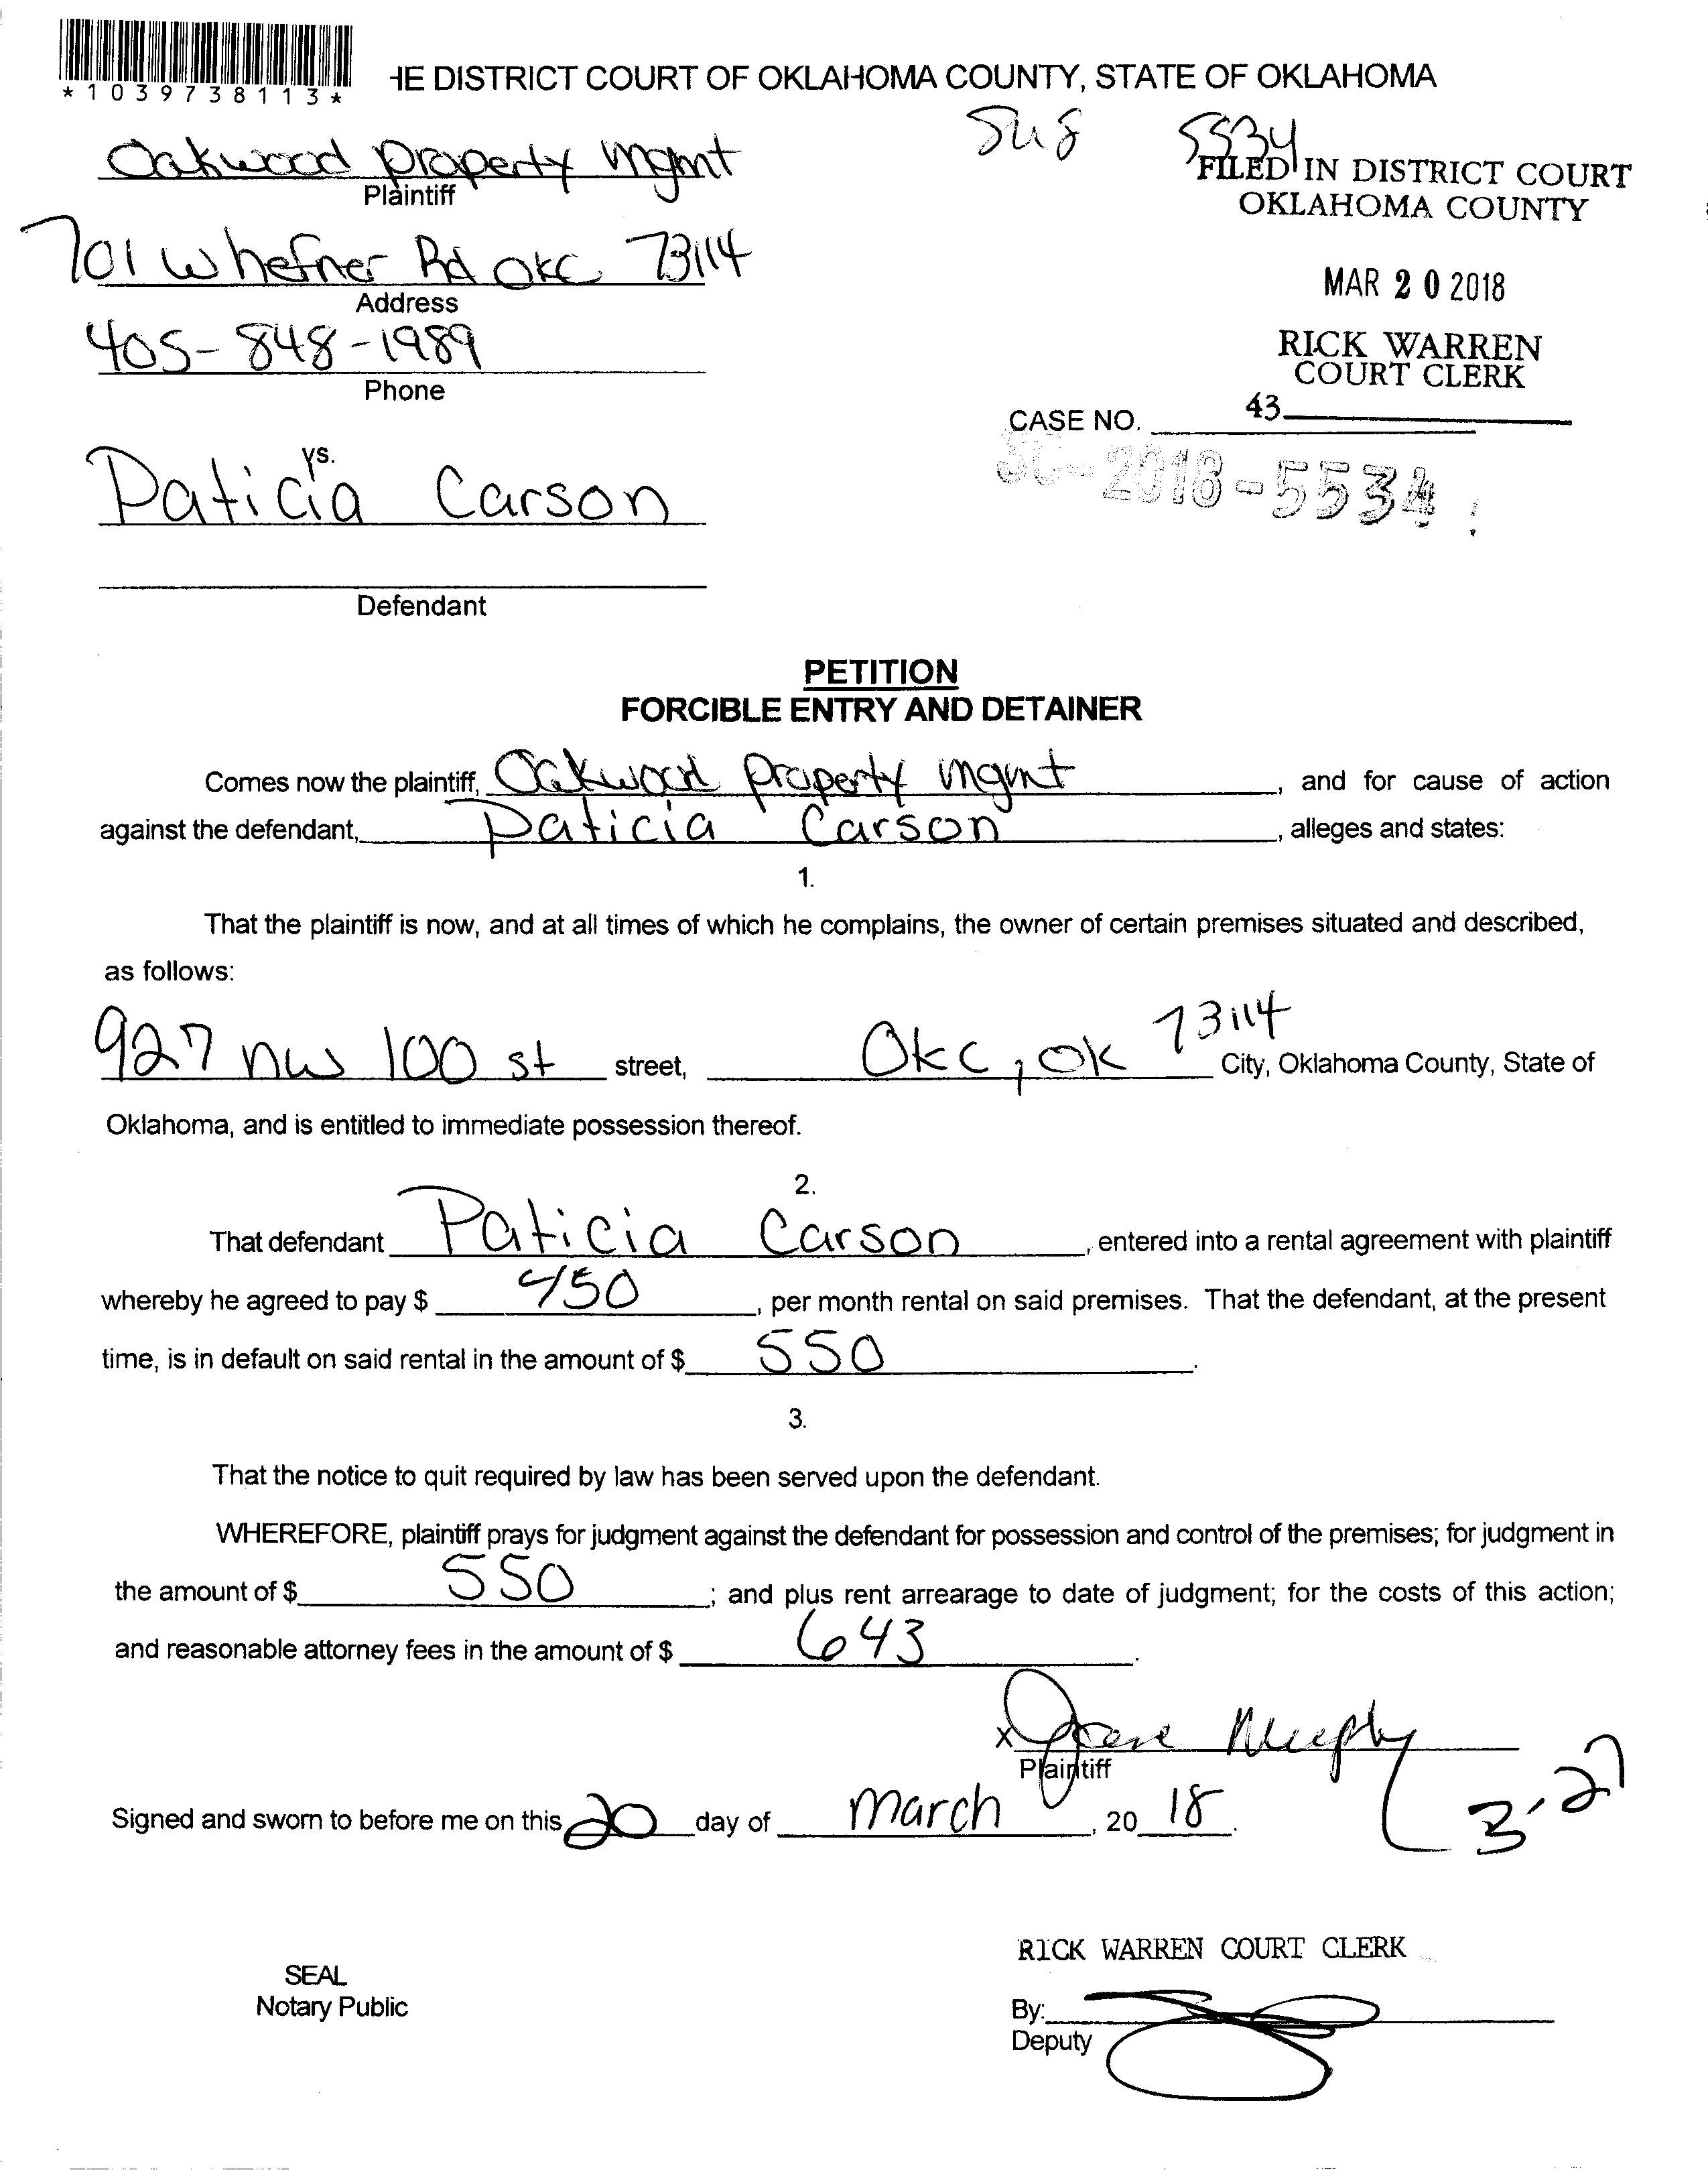 *1039738113*
HE DISTRICT COURT OF OKLAHOMA COUNTY, STATE OF OKLAHOMA
5534
Oakwood property mgmt
Plaintiff
FILED IN DISTRICT COURT
OKLAHOMA COUNTY
701 W hefner Rd OKC 73114
Address
MAR 20 2018
405-848-1989
Phone
RICK WARREN
COURT CLERK
43
CASE NO.
SC-2018-5534
vs.
Paticia Carson
Defendant
PETITION
FORCIBLE ENTRY AND DETAINER
Comes now the plaintiff, Oakwood property mgmt, and for cause of action
against the defendant, Paticia Carson, alleges and states:
1.
That the plaintiff is now, and at all times of which he complains, the owner of certain premises situated and described,
as follows:
927 nw 100 st street, OKC, OK 73114 City, Oklahoma County, State of
Oklahoma, and is entitled to immediate possession thereof.
2.
That defendant Paticia Carson, entered into a rental agreement with plaintiff
whereby he agreed to pay $ 450, per month rental on said premises. That the defendant, at the present
time, is in default on said rental in the amount of $ 550.
3.
That the notice to quit required by law has been served upon the defendant.
WHEREFORE, plaintiff prays for judgment against the defendant for possession and control of the premises; for judgment in
the amount of $ 550; and plus rent arrearage to date of judgment; for the costs of this action;
and reasonable attorney fees in the amount of $ 643.
X
Plaintiff
Signed and sworn to before me on this 20 day of March, 20 18.
3-27
RICK WARREN COURT CLERK
SEAL
Notary Public
By:
Deputy